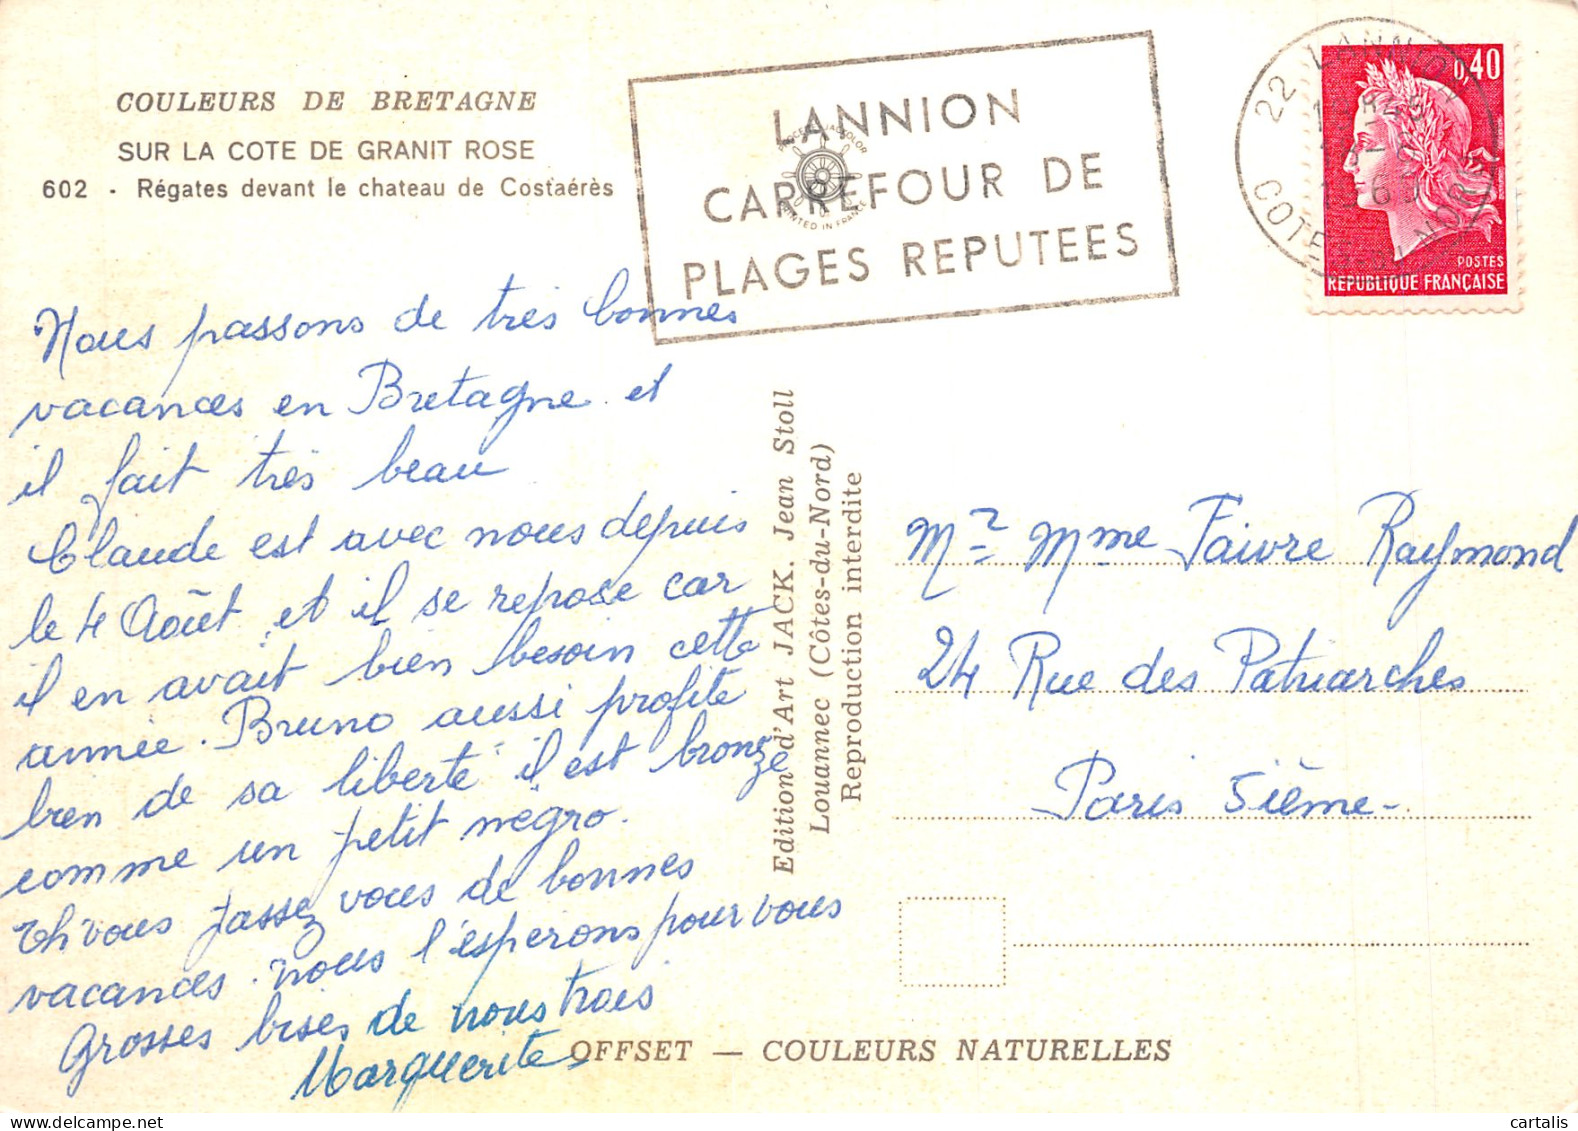 COULEURS DE BRETAGNE
SUR LA COTE DE GRANIT ROSE
602 - Régates devant le chateau de Costaérès
LANNION
CARREFOUR DE
PLAGES REPUTEES
PRINTED IN FRANCE
22 LANNION
COTES-DU-NORD
0,40
POSTES
REPUBLIQUE FRANÇAISE
Nous passons de très bonnes
vacances en Bretagne et
il fait très beau
Claude est avec nous depuis
le 4 Août et il se repose car
il en avait bien besoin cette
année. Bruno aussi profite
bien de sa liberté il est bronzé
comme un petit négro.
vous passez vous de bonnes
vacances. nous l'espérons pour vous
Grosses bises de nous trois
Marguerite
Edition d'Art JACK. Jean Stoll
Louannec (Côtes-du-Nord)
Reproduction interdite
Mr Mme Faivre Raymond
24 Rue des Patriarches
Paris 5ième-
OFFSET — COULEURS NATURELLES
cartalis